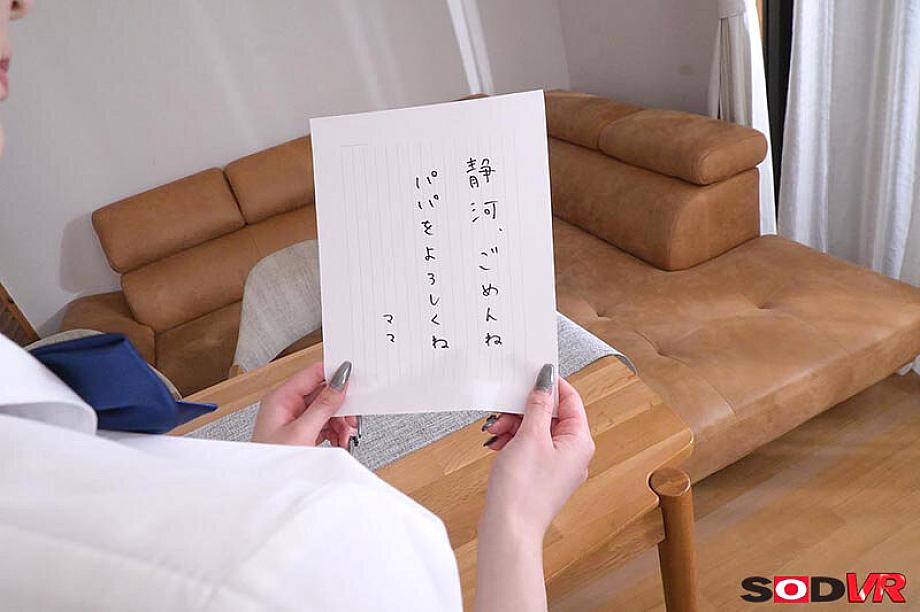 静河、ごめんね
パパをよろしくね
ママ
SODVR